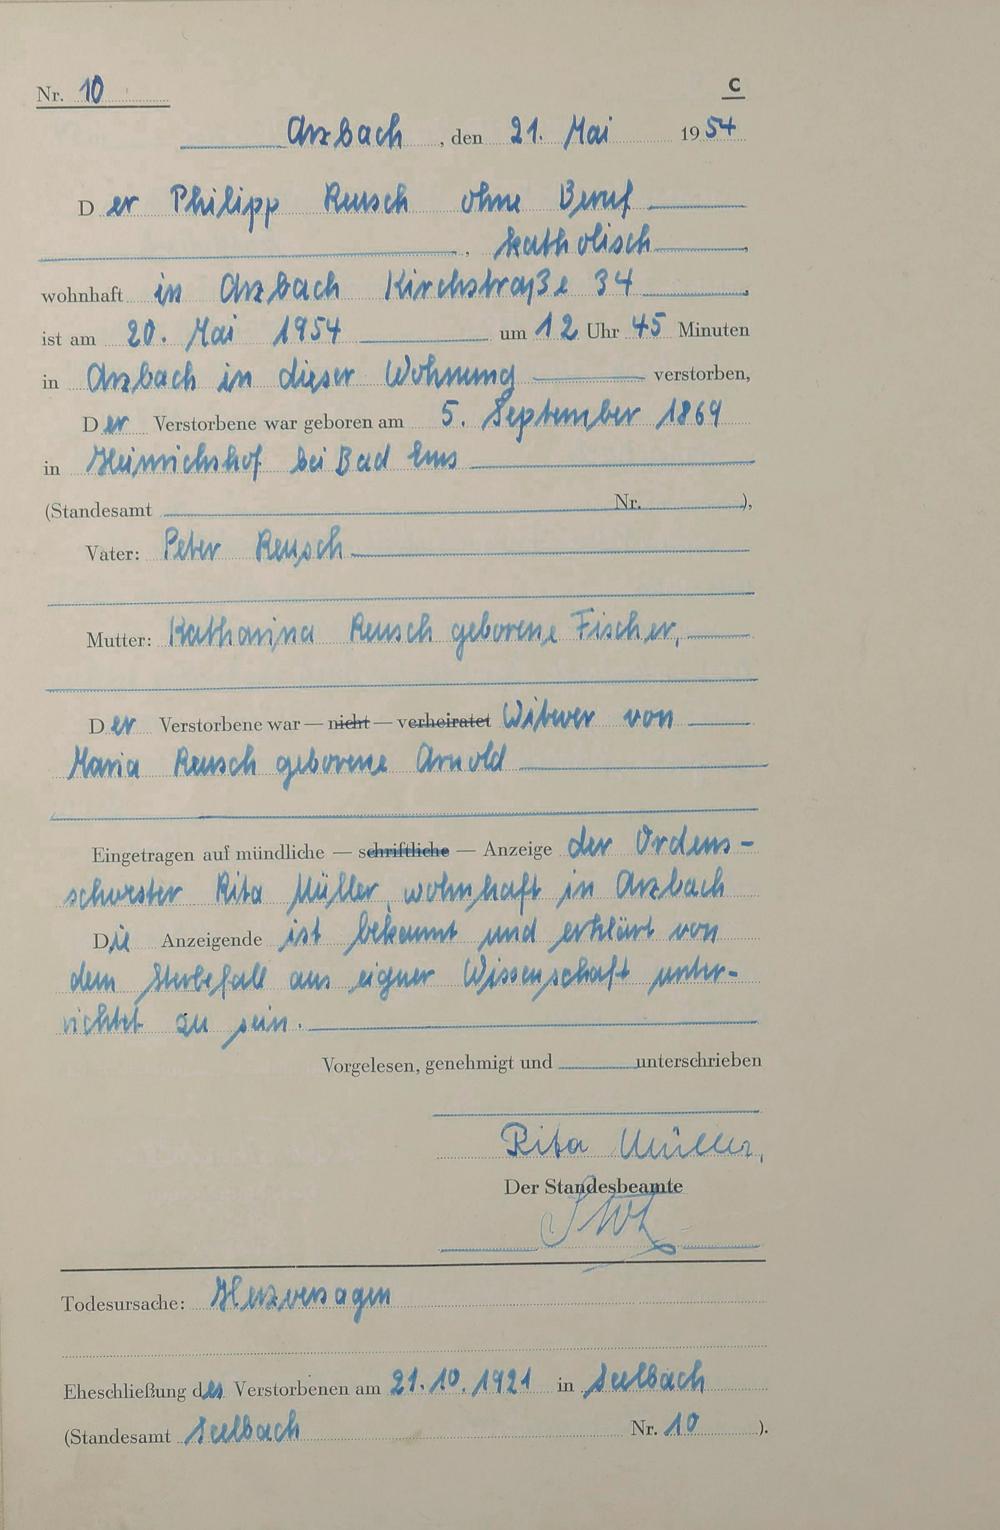 Nr. 10
C
Arzbach, den 21. Mai 1954
Der Philipp Reusch ohne Beruf
, katholisch,
wohnhaft in Arzbach Kirchstraße 34,
ist am 20. Mai 1954 um 12 Uhr 45 Minuten
in Arzbach in dieser Wohnung verstorben,
Der Verstorbene war geboren am 5. September 1869
in Heinrichshof bei Bad Ems
(Standesamt Nr. ),
Vater: Peter Reusch
Mutter: Katharina Reusch geborene Fischer,
Der Verstorbene war — nicht — verheiratet Witwer von
Maria Reusch geborene Arnold
Eingetragen auf mündliche — schriftliche — Anzeige der Ordens-
schwester Rita Müller, wohnhaft in Arzbach
Die Anzeigende ist bekannt und erklärt von
dem Sterbefall aus eigner Wissenschaft unter-
richtet zu sein.
Vorgelesen, genehmigt und unterschrieben
Rita Müller,
Der Standesbeamte
Todesursache: Herzversagen
Eheschließung des Verstorbenen am 21.10.1921 in Seelbach
(Standesamt Seelbach Nr. 10 ).